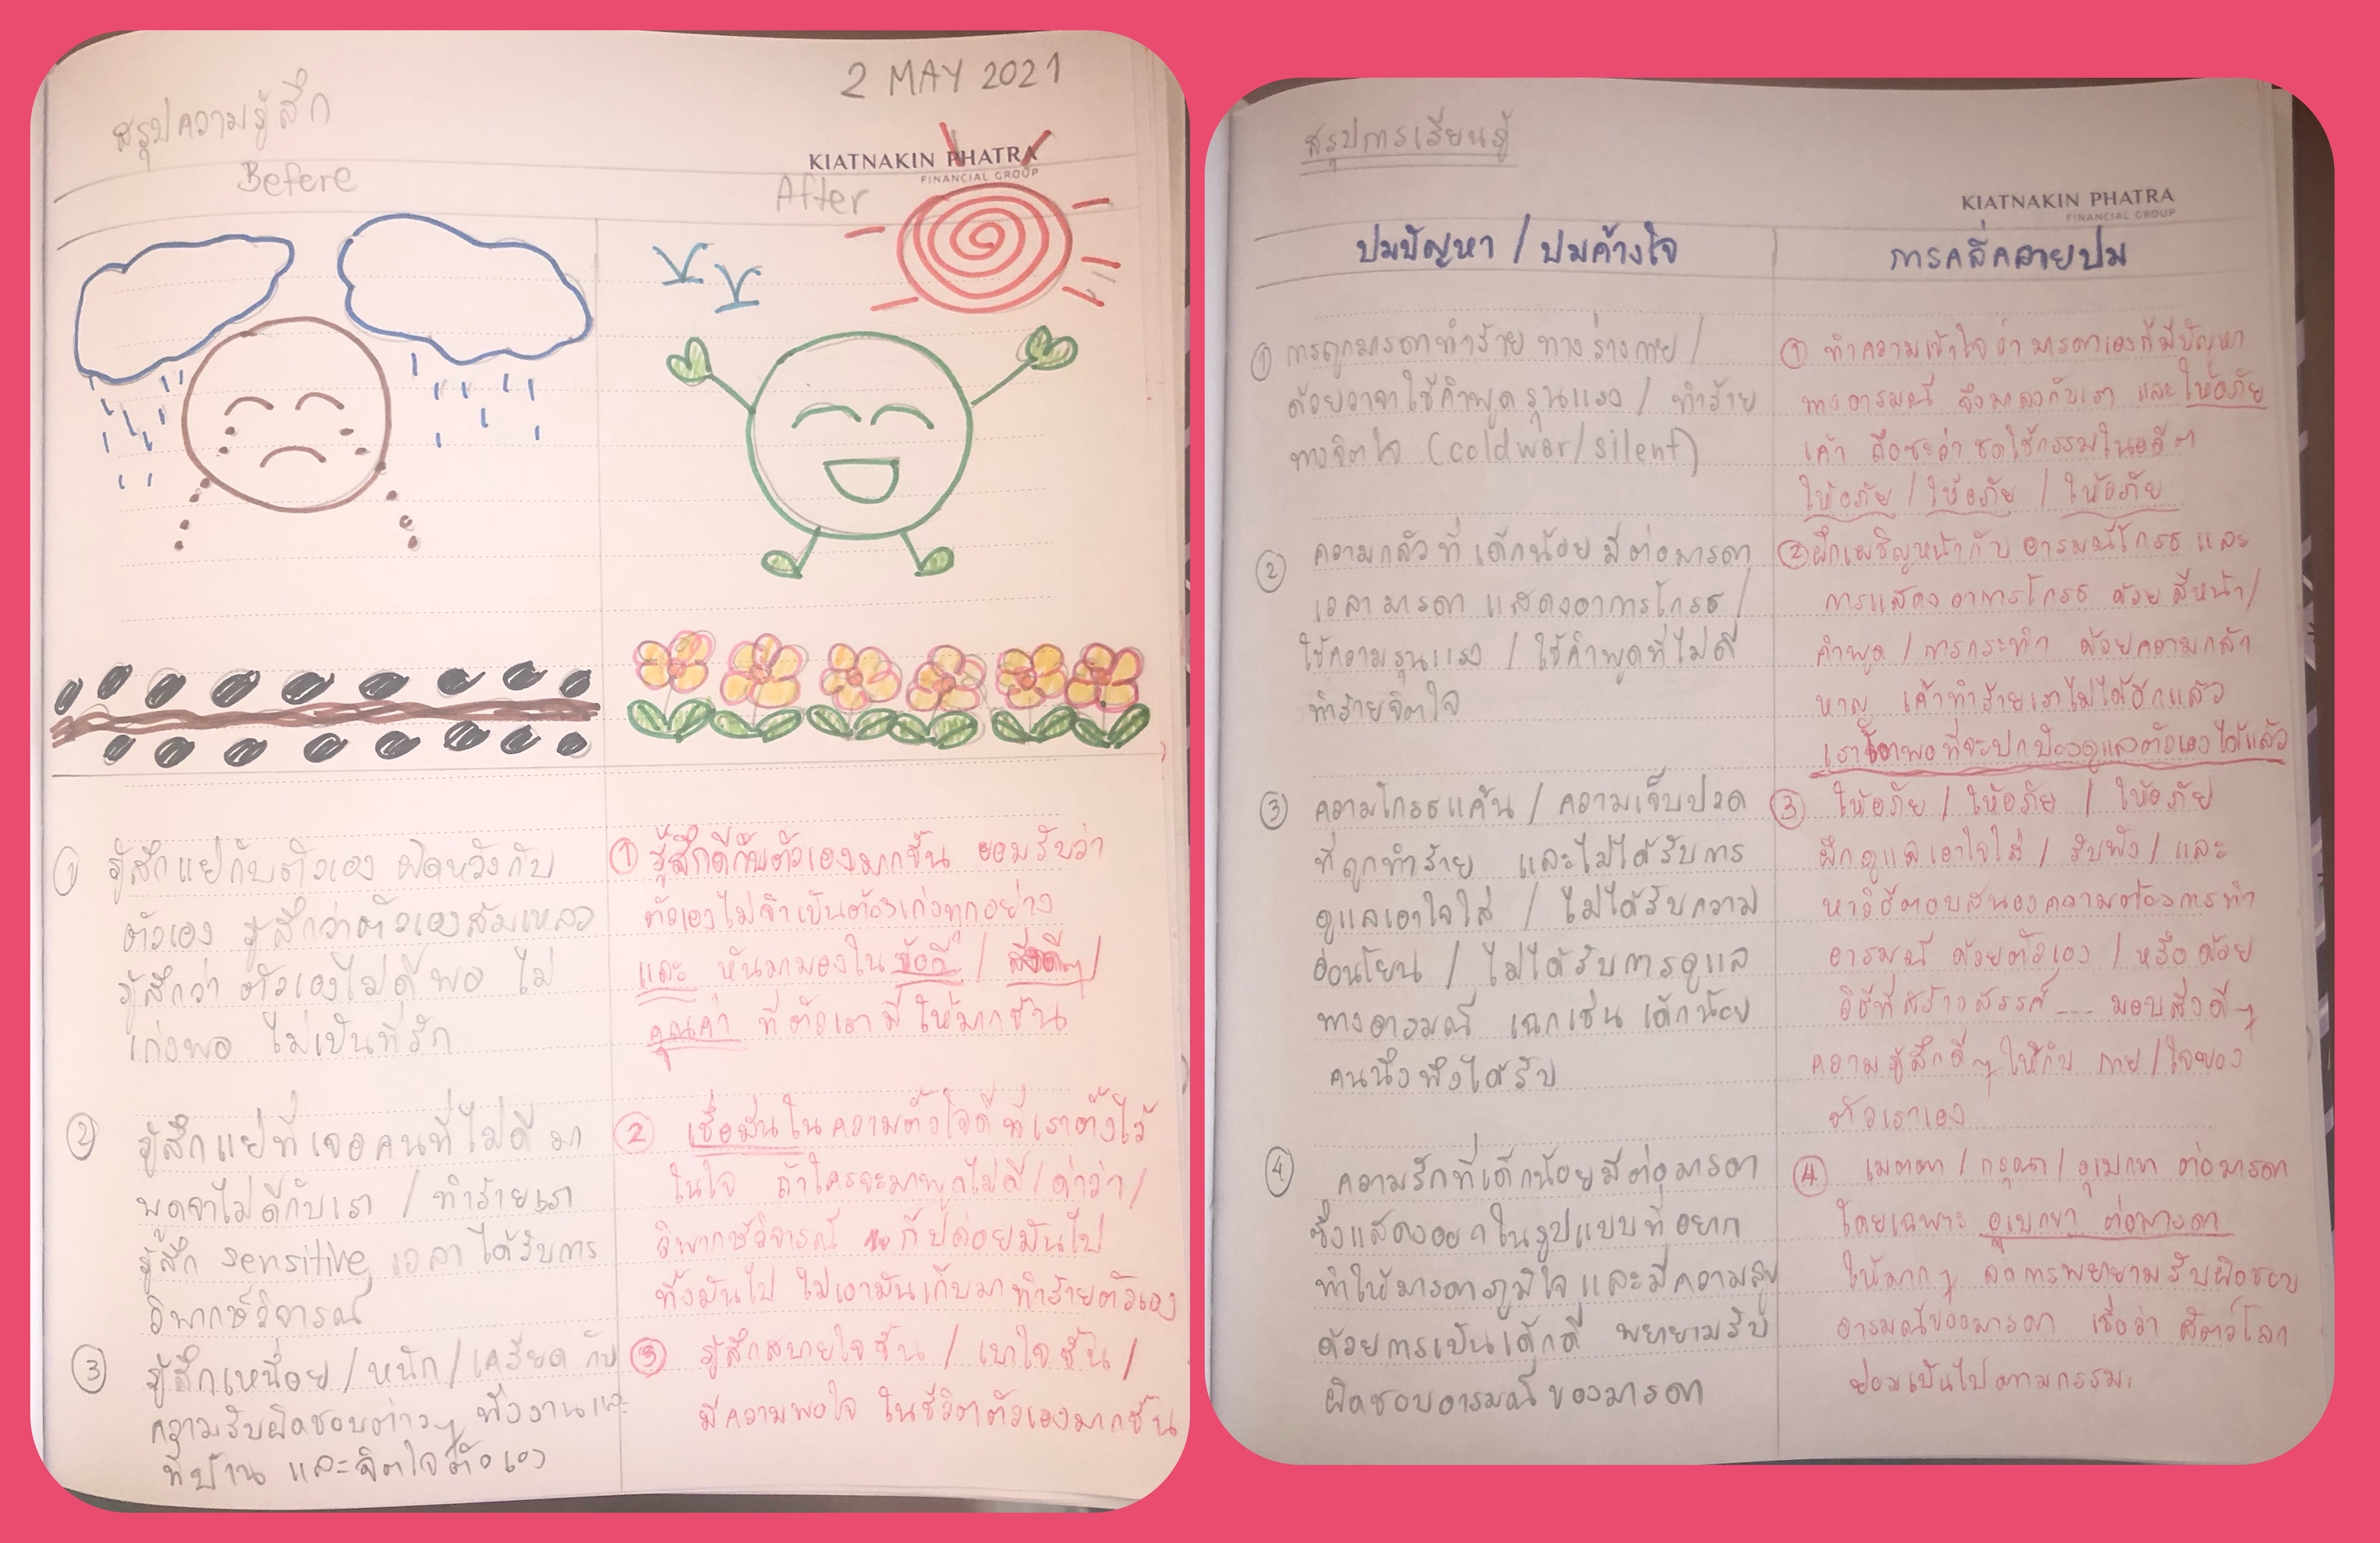 2 MAY 2021
สรุปความรู้สึก
KIATNAKIN PHATRA
FINANCIAL GROUP
Before
After
① รู้สึกแย่กับตัวเอง ผิดหวังกับ
ตัวเอง รู้สึกว่าตัวเองล้มเหลว
รู้สึกว่า ตัวเองไม่ดีพอ ไม่
เก่งพอ ไม่เป็นที่รัก
② รู้สึกแย่ที่เจอคนที่ไม่ดี มา
พูดจาไม่ดีกับเรา / ทำร้ายเรา
รู้สึก sensitive เวลาได้รับการ
วิพากษ์วิจารณ์
③ รู้สึกเหนื่อย / หนัก / เครียด กับ
ความรับผิดชอบต่างๆ ทั้งงานและ
ที่บ้าน และจิตใจตัวเอง
① รู้สึกดีกับตัวเองมากขึ้น ยอมรับว่า
ตัวเองไม่จำเป็นต้องเก่งทุกอย่าง
และ หันมามองใน ข้อดี / สิ่งดีๆ /
คุณค่า ที่ตัวเรามี ให้มากขึ้น
② เชื่อมั่นในความตั้งใจดี ที่เราตั้งไว้
ในใจ ถ้าใครจะมาพูดไม่ดี / ด่าว่า /
วิพากษ์วิจารณ์ ก็ปล่อยมันไป
ทิ้งมันไป ไม่เอามันเก็บมาทำร้ายตัวเอง
③ รู้สึกสบายใจขึ้น / เบาใจขึ้น /
มีความพอใจ ในชีวิตตัวเองมากขึ้น
สรุปการเรียนรู้
KIATNAKIN PHATRA
FINANCIAL GROUP
ปมปัญหา / ปมค้างใจ
การคลี่คลายปม
① การถูกมารดาทำร้าย ทางร่างกาย /
ด้วยวาจาใช้คำพูดรุนแรง / ทำร้าย
ทางจิตใจ (cold war/silent)
② ความกลัวที่ เด็กน้อย มีต่อมารดา
เวลามารดา แสดงอาการโกรธ /
ใช้ความรุนแรง / ใช้คำพูดที่ไม่ดี
ทำร้ายจิตใจ
③ ความโกรธแค้น / ความเจ็บปวด
ที่ถูกทำร้าย และไม่ได้รับการ
ดูแลเอาใจใส่ / ไม่ได้รับความ
อ่อนโยน / ไม่ได้รับการดูแล
ทางอารมณ์ เฉกเช่น เด็กน้อย
คนนึงพึงได้รับ
④ ความรักที่เด็กน้อยมีต่อมารดา
ซึ่งแสดงออกในรูปแบบที่อยาก
ทำให้มารดาภูมิใจ และมีความสุข
ด้วยการเป็นเด็กดี พยายามรับ
ผิดชอบอารมณ์ของมารดา
① ทำความเข้าใจว่า มารดาเองก็มีปัญหา
ทางอารมณ์ จึงมาลงกับเรา และให้อภัย
เค้า ถือซะว่า ชดใช้กรรมในอดีต
ให้อภัย / ให้อภัย / ให้อภัย
② ฝึกเผชิญหน้ากับ อารมณ์โกรธ และ
การแสดงอาการโกรธ ด้วย สีหน้า /
คำพูด / การกระทำ ด้วยความกล้า
หาญ เค้าทำร้ายเราไม่ได้อีกแล้ว
เราโตพอที่จะปกป้องดูแลตัวเองได้แล้ว
③ ให้อภัย / ให้อภัย / ให้อภัย
ฝึกดูแลเอาใจใส่ / รับฟัง / และ
หาวิธีตอบสนองความต้องการทาง
อารมณ์ ด้วยตัวเอง / หรือ ด้วย
วิธีที่สร้างสรรค์ --- มอบสิ่งดีๆ
ความรู้สึกดีๆ ให้กับ กาย / ใจของ
ตัวเราเอง
④ เมตตา / กรุณา / อุเบกขา ต่อมารดา
โดยเฉพาะ อุเบกขา ต่อมารดา
ให้มากๆ ลดการพยายามรับผิดชอบ
อารมณ์ของมารดา เชื่อว่า สัตว์โลก
ย่อมเป็นไปตามกรรม.